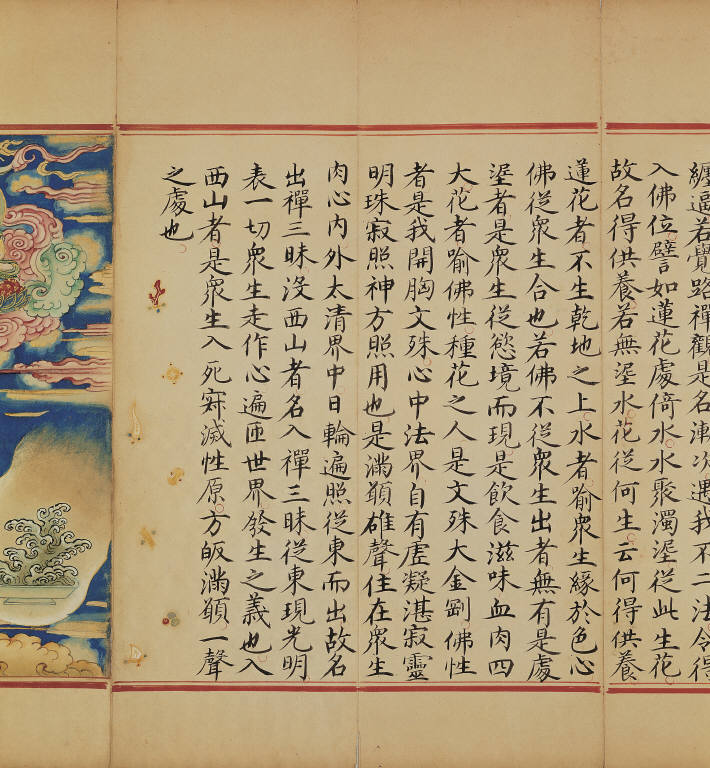 纏逼若覺路禪觀是名漸次遇我不二法令得
入佛位譬如蓮花處倚水水聚濁埿從此生花
故名得供養若無埿水花從何生云何得供養
蓮花者不生乾地之上水者喻衆生緣於色心
佛從衆生合也若佛不從衆生出者無有是處
埿者是衆生從慾境而現是飲食滋味血肉四
大花者喻佛性種花之人是文殊大金剛佛性
者是我開胸文殊心中法界自有虛凝湛寂靈
明珠寂照神方照用也是滿願碓聲住在衆生
肉心內外太清界中日輪遍照從東而出故名
出禪三昧沒西山者名入禪三昧從東現光明
表一切衆生走作心遍匝世界發生之義也入
西山者是衆生入死寂滅性原方皈滿願一聲
之處也